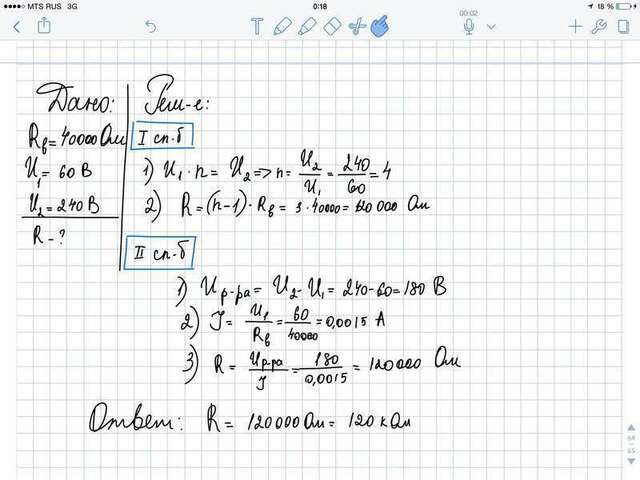 MTS RUS 3G 0:18 18 %
00:02
Дано:
Rв = 40000 Ом
U₁ = 60 В
U₂ = 240 В
R - ?
Реш-е:
I сп-б
1) U₁ · n = U₂ => n = U₂/U₁ = 240/60 = 4
2) R = (n-1) · Rв = 3 · 40000 = 120000 Ом
II сп-б
1) Uр-ра = U₂ - U₁ = 240-60 = 180 В
2) J = U₁/Rв = 60/40000 = 0,0015 А
3) R = Uр-ра/J = 180/0,0015 = 120000 Ом
Ответ: R = 120000 Ом = 120 кОм
64
65